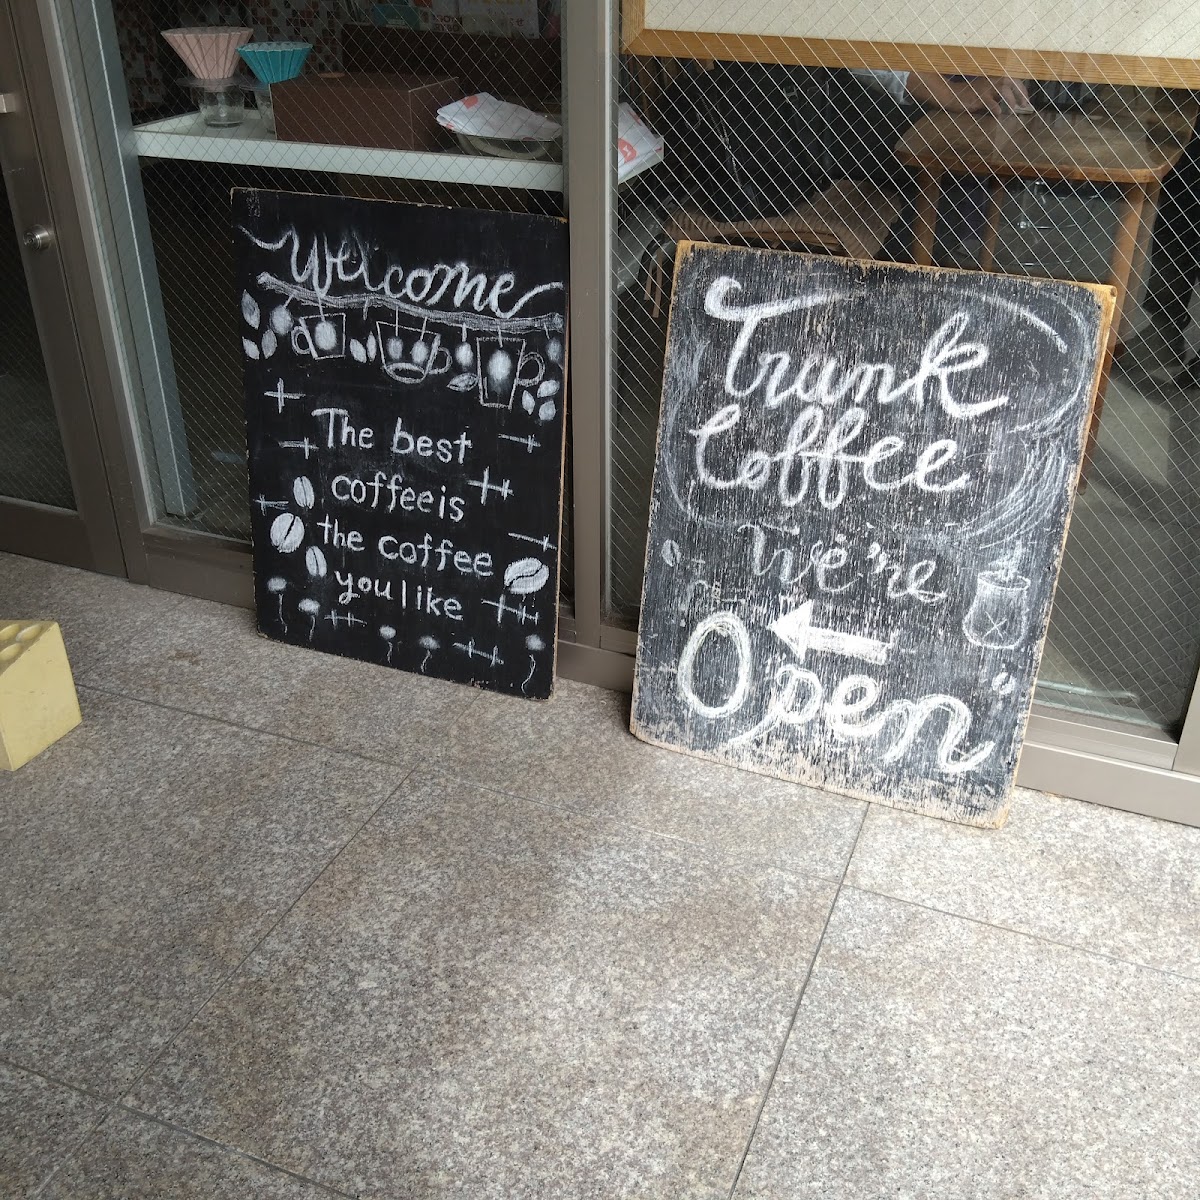 Welcome
The best
coffee is
the coffee
you like
Trunk
Coffee
We're
Open